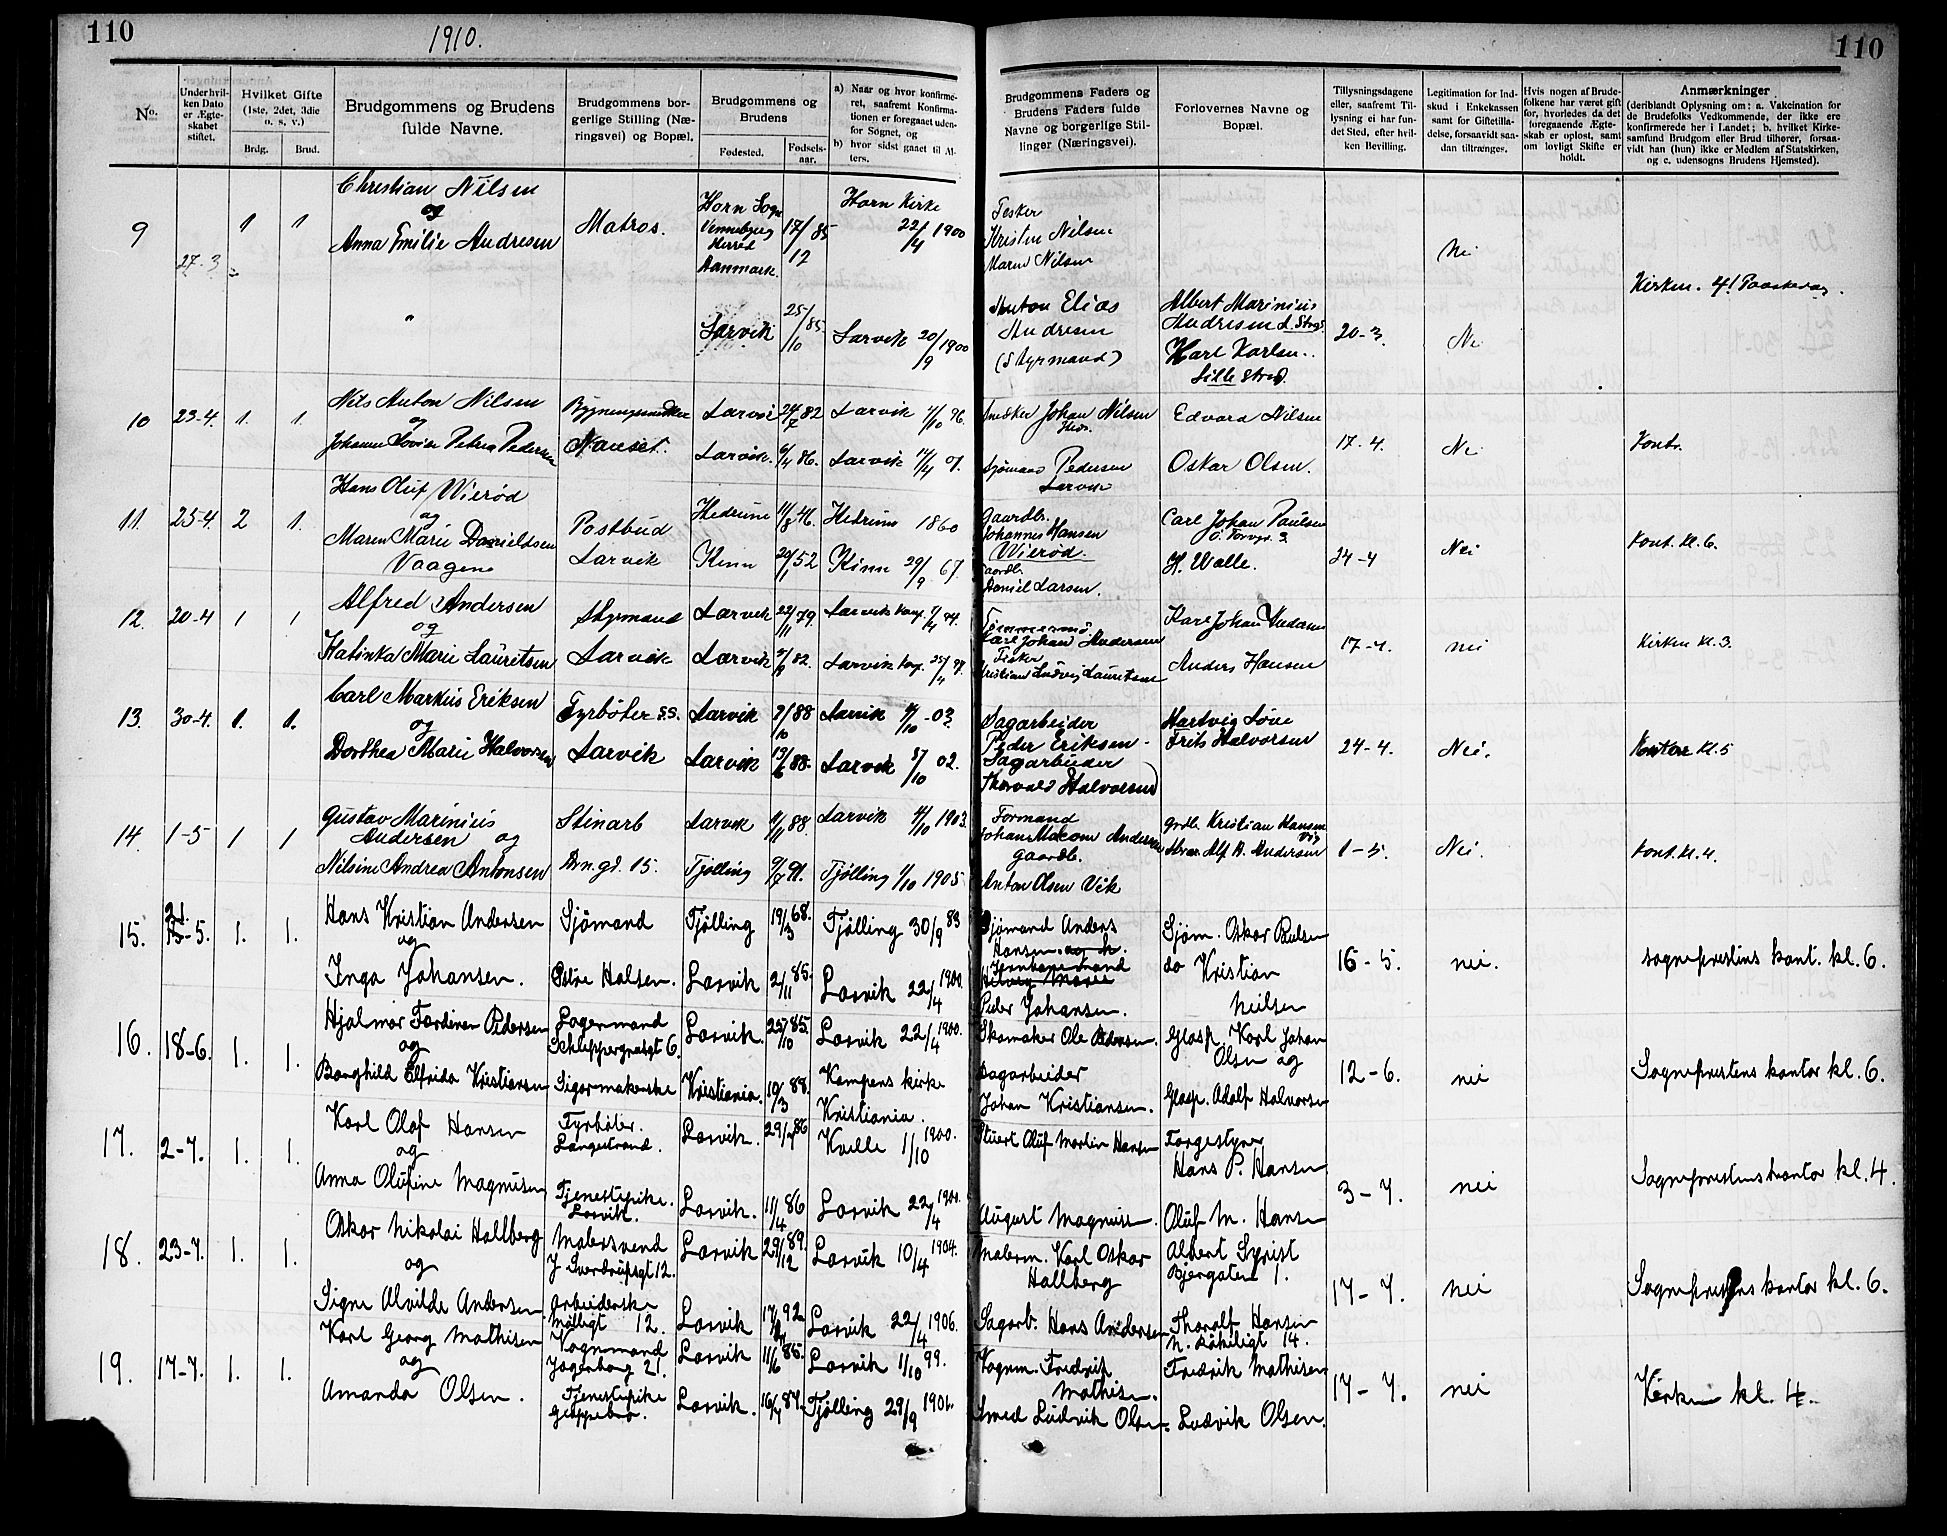 110
1910.
110
No.
Under hvilken Dato er Ægteskabet stiftet.
Hvilket Gifte (1ste, 2det, 3die o. s. v.)
Brdg.
Brud.
Brudgommens og Brudens fulde Navne.
Brudgommens borgerlige Stilling (Næringsvei) og Bopæl.
Brudgommens og Brudens
Fødested.
Fødselsaar.
a) Naar og hvor konfirmeret, saafremt Konfirmationen er foregaaet udenfor Sognet, og
b) hvor sidst gaaet til Alters.
Brudgommens Faders og Brudens Faders fulde Navne og borgerlige Stillinger (Næringsvei).
Forlovernes Navne og Bopæl.
Tillysningsdagene eller, saafremt Tillysning ei har fundet Sted, efter hvilken Bevilling.
Legitimation for Indskud i Enkekassen samt for Giftetilladelse, forsaavidt saadan tiltrænges.
Hvis nogen af Brudefolkene har været gift før, hvorledes da det foregaaende Ægteskab er opløst, samt om lovligt Skifte er holdt.
Anmærkninger
(deriblandt Oplysning om: a. Vakcination for de Brudefolks Vedkommende, der ikke ere konfirmerede her i Landet; b. hvilket Kirkesamfund Brudgom eller Brud tilhører, forsaavidt han (hun) ikke er Medlem af Statskirken, og c. udensogns Brudens Hjemsted).
9 27.3 1 1 Christian Nilsen
og
Anna Emilie Andresen
Matros.
Horn Sogn
Vennebjerg
Herred
Danmark.
17/12 85
Horn Kirke
22/4 1900
Fesker
Kristen Nilsen
Maren Nilsen
Nei
Kirken. 4! Paaskedag.
Larvik 25/10 85 Larvik 20/9 1900
Anton Elias
Andresen
(Styrmand)
Albert Marinius
Andresen L. Strg.
Karl Karlsen.
Lille Strd.
20-3. Nei
10 23-4. 1. 1. Nils Anton Nilsen
og
Johanne Lovise Petrea Pedersen
Nanset.
Larvik 24/7 82 Larvik 1/10 96.
Larvik. 6/4 86. Larvik 14/4 01.
Snedker Johan Nilsen
Sjømand Pedersen
Larvik
Edvard Nilsen
Oskar Olsen.
17-4. Nei Kontr.
11. 25-4. 2 1. Hans Oluf Wierød
og
Maren Marie Danieldsen
Vaagene
Postbud
Larvik
Hedrum 11/8 46. Hedrum 1860
Kinn 20/1 52 Kinn 29/9 67.
Gaardb.
Johannes Hansen
Wierød.
Gaardb.
Daniel Larsen.
Carl Johan Paulsen
Ø. Torvgt. 3.
H. Walle.
24-4 Nei Kont. kl. 6.
12. 20-4 1 1 Alfred Andersen
og
Katinka Marie Lauritsen
Styrmand
Larvik
Larvik 22/11 79. Larvik 94.
Larvik 82. Larvik 25/4 97.
Tømmermd.
Karl Johan Andersen
Fisker
Kristian Ludvig Lauritsen
Karl Johan Andersen
Anders Hansen
17-4. nei Kirken kl. 3.
13. 30-4. 1. 1. Carl Markus Eriksen
og
Dorthea Marie Halvorsen
Fyrbøter S.S.
Larvik
Larvik 7/10 88 Larvik 4/10 -03.
Larvik 13/6 88. Larvik 5/10 02.
Sagarbeider
Peder Eriksen -
Sagarbeider
Thorvald Halvorsen
Hartvig Løve
Frits Halvorsen
24-4. Nei. Kontor kl. 5
14. 1-5 1 1 Gustav Marinius
Andersen og
Nilsine Andrea Antonsen
Stenarb
Brn.gd. 15.
Larvik 1/11 88 Larvik 4/10 1903.
Tjølling 9/7 91. Tjølling 1/10 1905
Formand
Johan Andersen
Gaardb.
Anton Olsen Vik
Grdb. Kristian Hansen
Vig
Alf A. Andersen
1-5. Nei. Kont. kl. 4.
15. 21 13-5. 1. 1. Hans Kristian Andersen
og
Inga Johansen.
Sjømand
Østre Halsen.
Tjølling 19/3 68. Tjølling 30/9 83
Larvik 2/11 85. Larvik 22/4 1900.
Sjømand Anders
Hansen og h.
Jernbanemand
Helvig Marie
Peder Johansen.
Sjøm. Oskar Paulsen
do Kristian
Nielsen
16-5. nei. sogneprestens kont. kl. 6.
16. 18-6. 1. 1. Hjalmar Ferdinan Pedersen
og
Borghild Elfrida Kristiansen
Lagermand
Schleppegrelsgt 6.
Sigarmakerske
Larvik. 25/10 85. Larvik 22/4 1900.
Kristiania. 10/3 88. Kampens kirke
Kristiania.
Skomaker Ole Pedersen.
Sagarbeider
Johan Kristiansen.
Glasp. Karl Johan
Olsen og
Glasp. Adolf Halvorsen
12-6. nei Sogneprestens kontor kl. 6.
17. 2-7. 1. 1. Karl Olaf Hansen
og
Anna Olufine Magnusen
Fyrbøter.
Langestrand.
Tjenestepike.
Larvik.
Larvik. 29/7 86 Kvelle 1/10 1900.
Larvik. 11/4 86 Larvik 22/4 1900.
Stuert Oluf Martin Hansen
August Magnusen.
Færgestyrer
Hans P. Hansen
Oluf M. Hansen
3-7. nei Sogneprestens kontor kl. 4.
18. 23-7. 1. 1. Oskar Nikolai Hallberg
og
Signe Alvilde Andersen
Malersvend
J Sverdrupsgt 12.
Arbeiderske
Møllegt 12.
Larvik 29/12 89. Larvik 10/4 1904.
Larvik 17/8 92. Larvik 22/4 1906.
Malerm. Karl Oskar
Hallberg
Sagarb. Hans Andersen
Albert Syrist
Bjergaten 1.
Thoralf Hansen
N. 14.
17-7. nei Sogneprestens kontor kl. 6.
19. 17-7. 1. 1. Karl Georg Mathisen
og
Amanda Olsen.
Vognmand
Jegerborg 21.
Tjenestepike
Larvik 11/6 85. Larvik 1/10 99.
Larvik. 16/7 87. Tjølling 29/9 1901.
Vognm. Fredrik
Mathisen.
Smed Ludvik Olsen.
Fredrik Mathisen
Ludvik Olsen.
17-7. nei Kirken kl. 4.